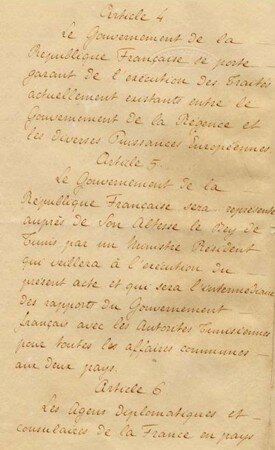 Article 4
Le Gouvernement de la
République Française se porte
garant de l'exécution des Traités
actuellement existants entre le
Gouvernement de la Régence et
les diverses Puissances Européennes
Article 5.
Le Gouvernement de la
République Française sera représenté
auprès de Son Altesse le Bey de
Tunis par un Ministre Résident
qui veillera à l'exécution du
présent acte et qui sera l'intermédiaire
des rapports du Gouvernement
français avec les Autorités Tunisiennes
pour toutes les affaires communes
aux deux pays.
Article 6
Les Agens diplomatiques et
consulaires de la France en pays